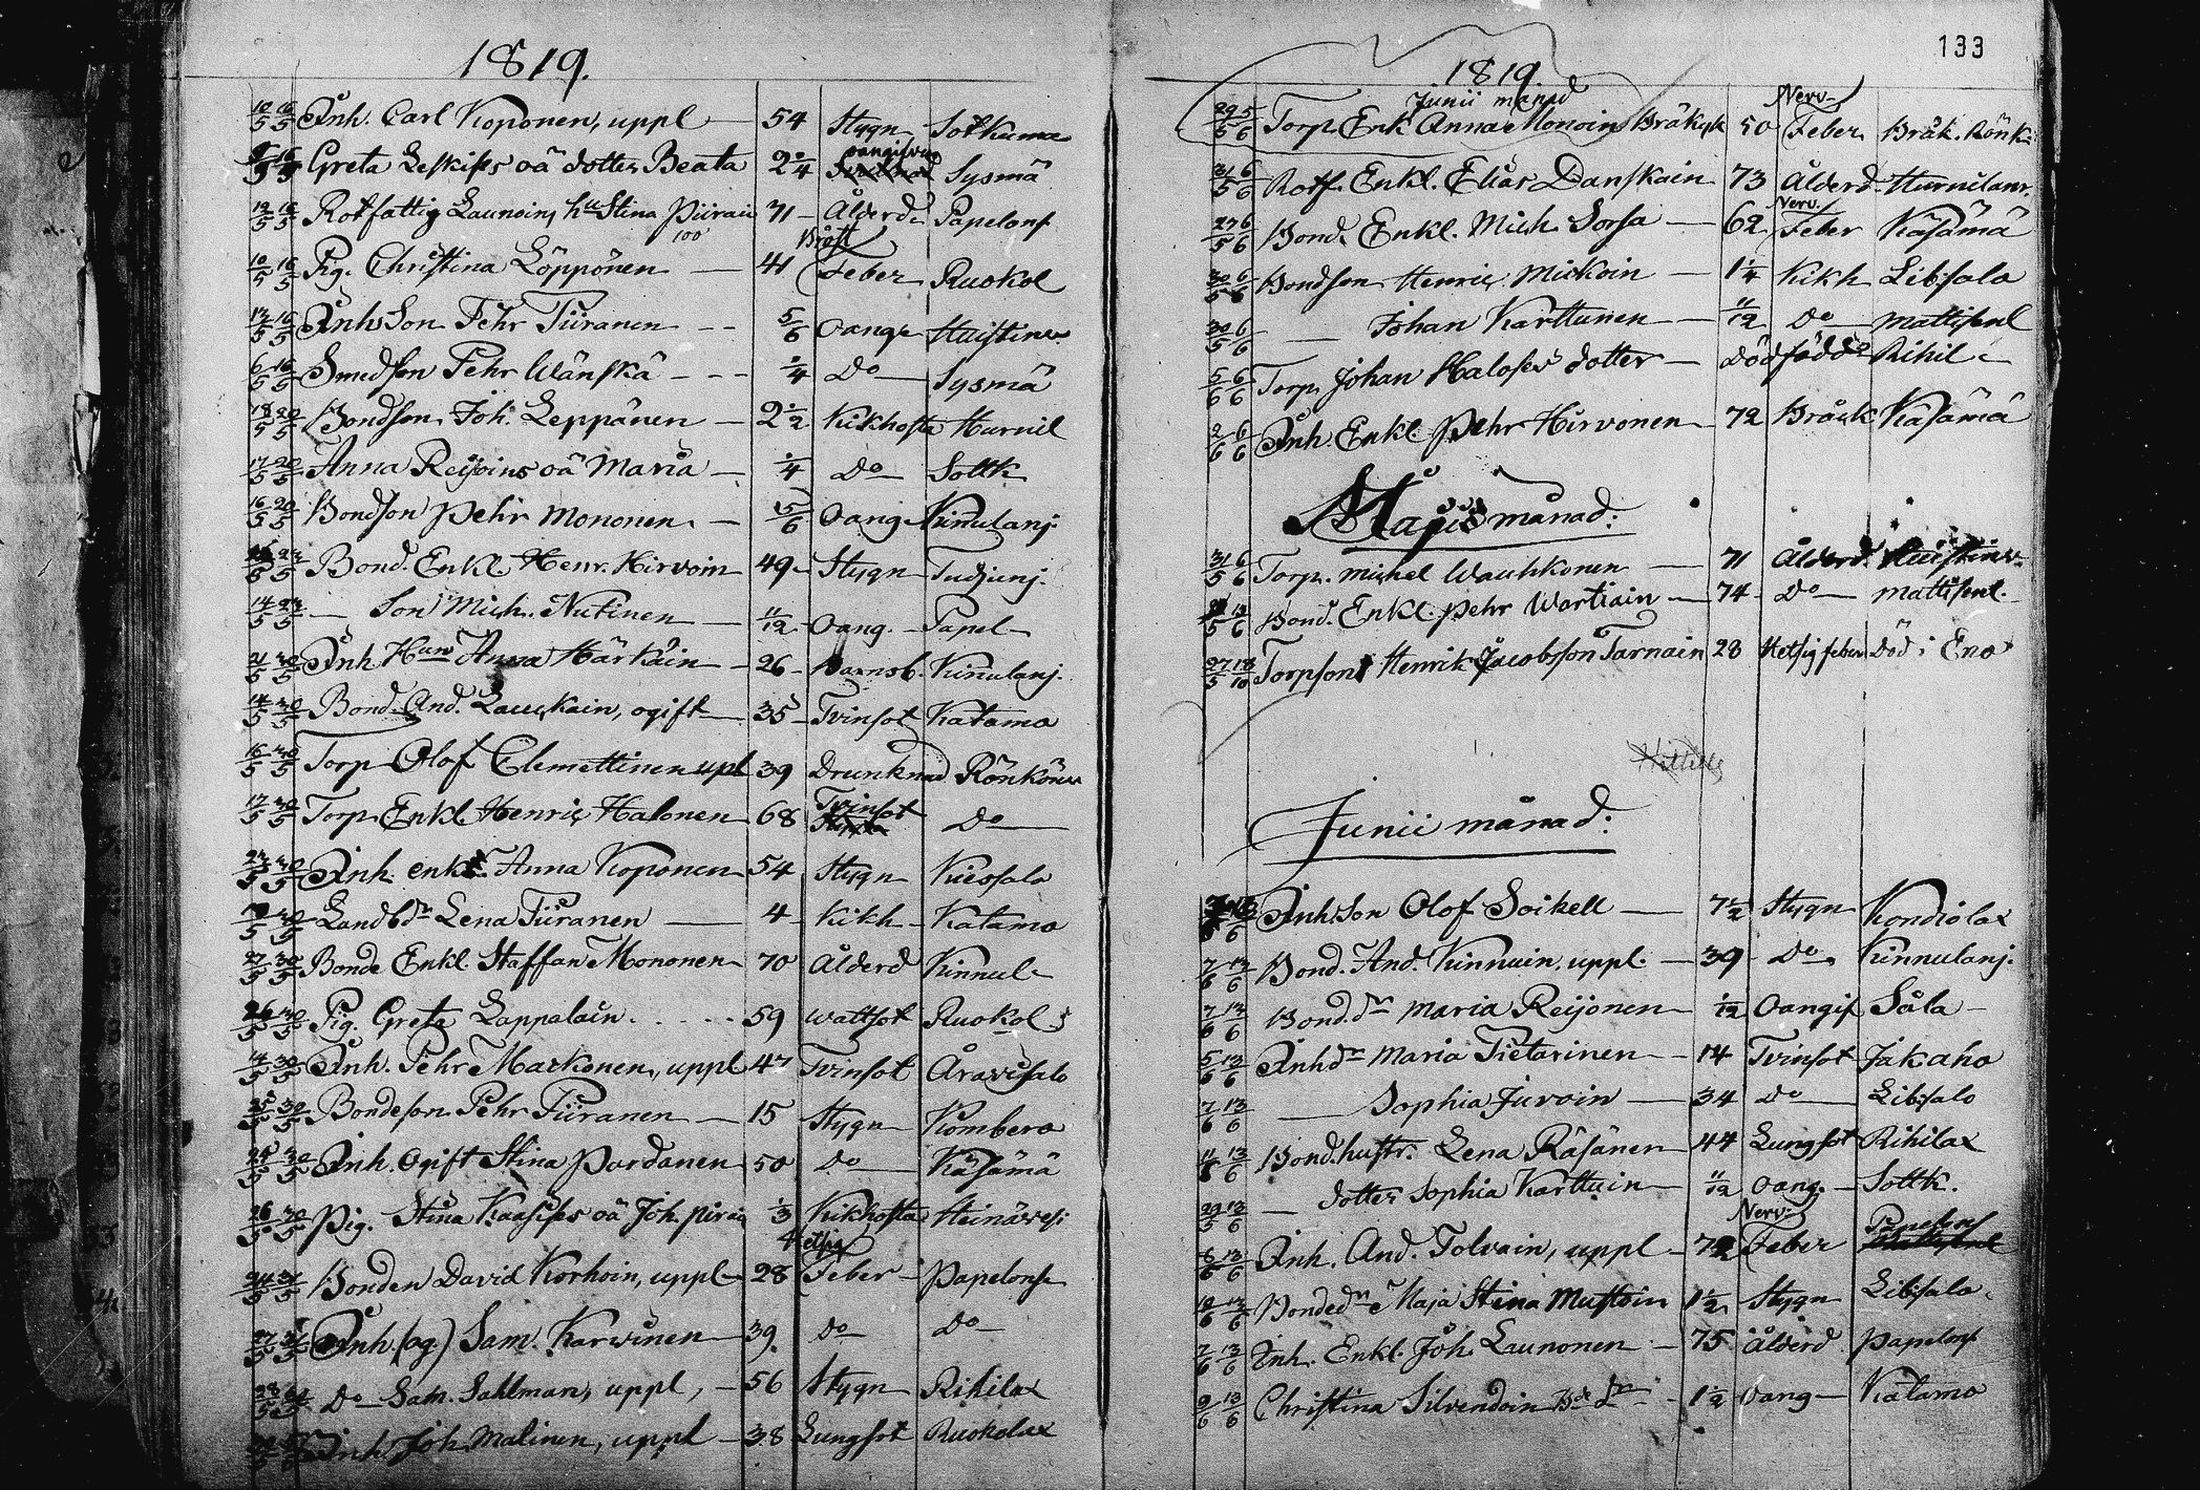 1819.
10/5 16/5 Inh. Carl Koponen, uppl — 54 Stygn Sotkuma
16/5 Greta Leskiss oä dotter Beata 2 1/4 oangifven Sysmä
12/5 16/5 Rotfattig Launoin, hu Stina Piirain 71 — Ålderd. Papelons
100
10/5 16/5 Pig. Christina Löppönen — 41 Bröst Feber Ruokol
13/5 16/5 Inhs Son Pehr Tiiranen — 5/6 Oange Huistinv.
6/5 16/5 Smedson Pehr Wänskä — 1/4 Do — Sysmä
18/5 20/5 Bondson Joh. Leppänen — 2 1/2 Kikhosta Harivil
17/5 20/5 Anna Reijoins oä Maria — 1/4 Do — Sottk
16/5 20/5 Bondson Pehr Mononen — 5/6 Oang. Kinnulanj.
23/5 Bond. Enkl. Henr. Hirvoin 49 — Stygn Tudjunj.
14/5 23/5 — Son Mich. Nutinen — 11/12 Oang. — Papel —
21/5 30/5 Inh Hust. Anna Härkäin — 26 — Barnsb. Kinulanj.
14/5 30/5 Bond. And. Laukkain, ogift — 35 — Tvinsot Katamo
16/5 30/5 Torp Olof Clemettinen upl 39 Drunknad Rönkönv
17/5 30/5 Torp. Enkl. Henric Halonen 68 Tvinsot Do —
23/5 30/5 Inh. enk. Anna Koponen 54 Stygn Kuessalo
30/5 Landb dr Lena Tiiranen — 4 — Kikh — Katamo
27/5 30/5 Bonde Enkl. Staffan Mononen 70 Ålderd Kinnul —
26/5 30/5 Pig. Greta Lappalain. . . . . 59 Wattsot Ruokol
14/5 30/5 Inh. Pehr Markonen, uppl 47 Tvinsot Aravisalo
25/5 30/5 Bondeson Pehr Tiiranen — 15 Stygn Kombero
24/5 30/5 Inh. Ogift Stina Pardanen 50 Do — Käsämä
26/5 30/5 Pig. Stina Kaasiss oä Joh. pirain 1/3 Kikhosta Heinävesi
24/5 31/5 Bonden David Korhoin, uppl 28 Hetsig Feber — Papelons
27/5 Inh. (og) Sam. Karvinen 39. Do — Do —
28/5 Do — Sam. Sahlman, uppl, — 56 Stygn Rihilax
Inh Joh. Malinen, uppl — 38 Lungsot Ruokolax
133
1819.
Junii månad
29/5 5/6 Torp. Enk Anna Monoin Bräkylä 50 Nerv- Feber Bräk. Rönk.
31/5 6/6 Rotf. Enkl. Elias Danskain 73 Ålderd. Hurulanv.
27/5 6/6 Bond. Enkl. Mich Sorsa — 62 Nerv. Feber Käsämä
30/5 6/6 Bondson Henric Mickoin — 1 1/4 Kikh Libisalo
30/5 6/6 — Johan Karttunen — 11/12 Do — Mattisenl
5/6 6/6 Torp. Johan Halosis dotter — Dödfödd Rihil —
2/6 6/6 Inh Enkl. Pehr Hirvonen 72 Bråck Käsämä
Maji månad:
31/5 6/6 Torp. Michel Wauhkonen — 71 Ålderd. Huistinv.
13/6 Bond. Enkl. Pehr Wartiain — 74 Do — Mattisenl.
27/5 Torpson Henrik Jacobsson Tarnain 28 Hetsig feber Död i Eno
Junii månad:
13/6 Inhs Son Olof Soikell — 7 1/2 Stygn Kondiolax
7/6 13/6 Bond. And. Kinnuin, uppl. — 39 Do — Kinnulanj.
7/6 13/6 Bond. dr Maria Reijonen — 1/12 Oangif Såla —
5/6 13/6 Inh dr Maria Tietarinen — 14 Tvinsot Jakaho
7/6 13/6 — Sophia Juvoin — 34 Do — Libisalo
11/6 13/6 Bond. hustr. Lena Räsänen 44 Lungsot Rihilax
29/5 13/6 — dotter Sophia Karttuin — 11/12 Oang. — Sottk.
8/6 13/6 Inh. And. Tolvain, uppl — 72 Nerv- Feber Papelons
12/6 13/6 Bonded dr Maja Stina Mustoin 1 1/2 Stygn Libisalo
7/6 13/6 Inh. Enkl. Joh. Launonen — 75 Ålderd Papelons
9/6 13/6 Christina Silvendoin Bde dr — 1 1/2 Oang — Katamo